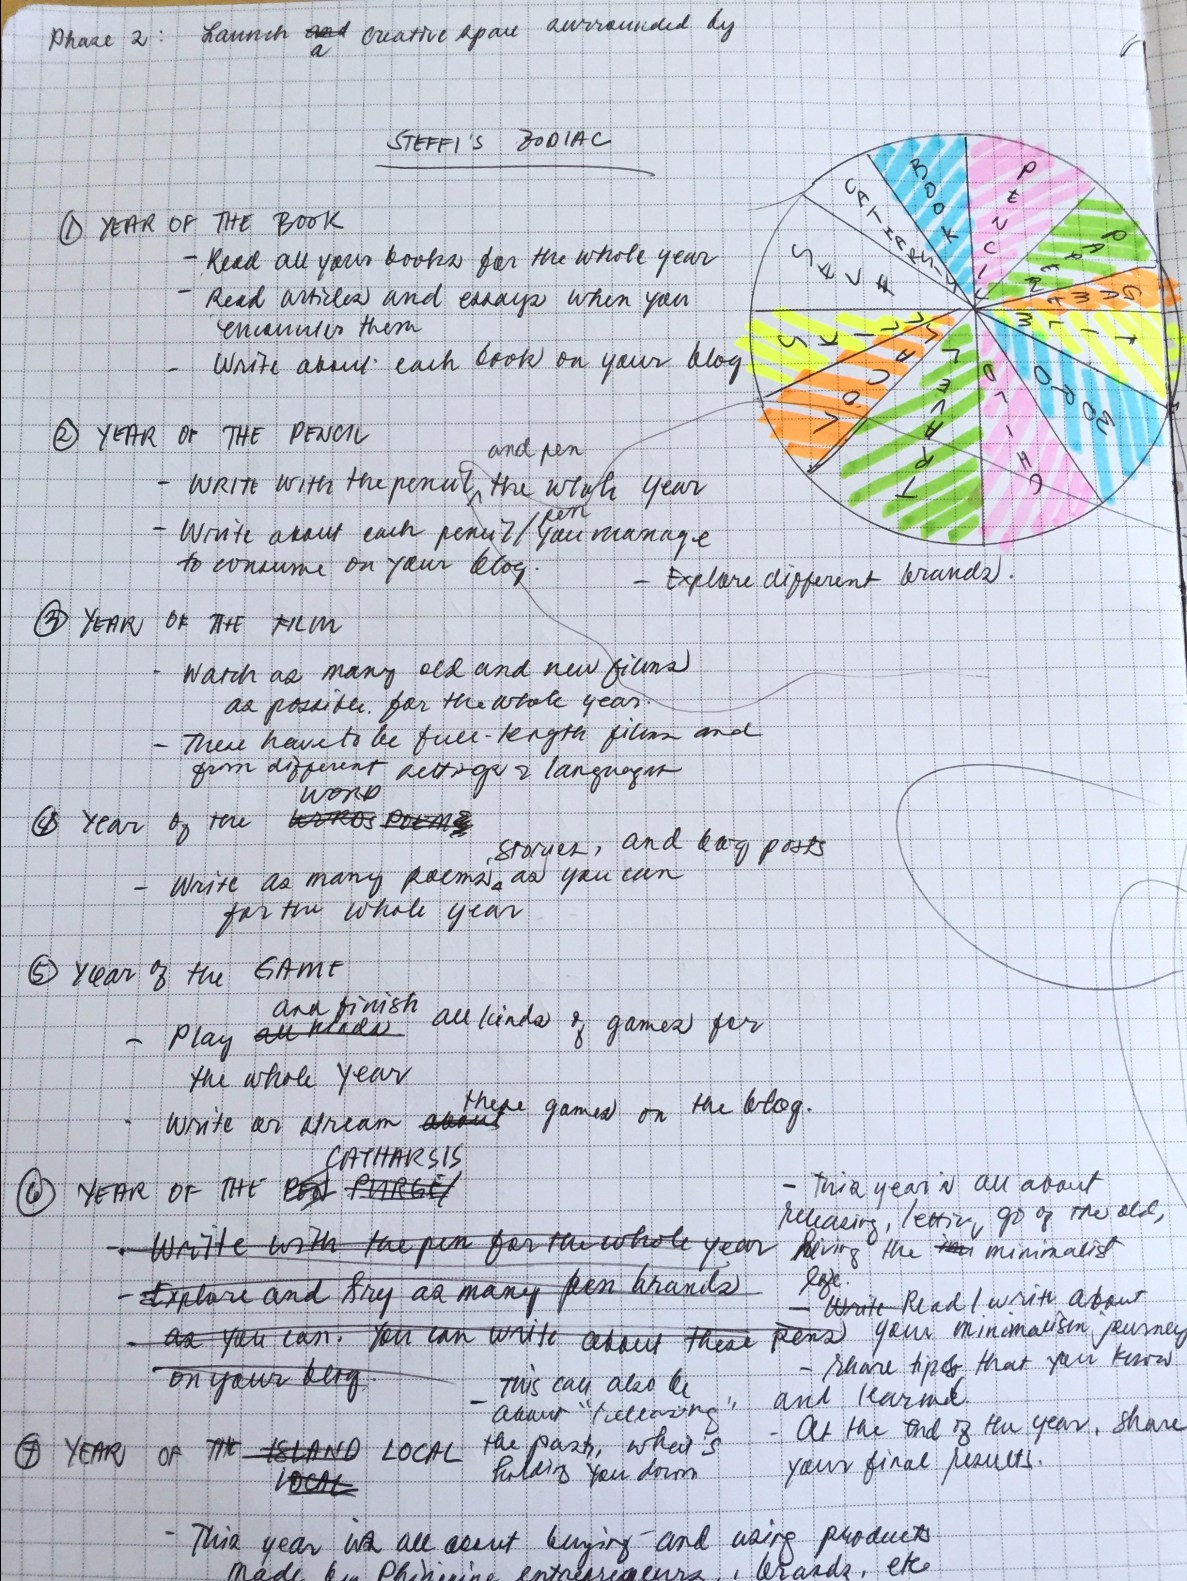 Phase 2: Launch a creative space surrounded by
STEFFI'S ZODIAC
① YEAR OF THE BOOK
- Read all your books for the whole year
- Read articles and essays when you
encounter them
- Write about each book on your blog
② YEAR OF THE PENCIL
and pen
- WRITE with the pencil ^ the whole year
- Write about each pencil/pen you manage
to consume on your blog.
- Explore different brands.
③ YEAR OF THE FILM
- Watch as many old and new films
as possible. for the whole year.
- These have to be full-length films and
from different settings & languages
WORD
④ Year of the WORDS POEMS
, stories, and blog posts
- Write as many poems ^ as you can
for the whole year
⑤ Year of the GAME
and finish
- Play all kinds all kinds of games for
the whole year
- Write or stream about these games on the blog.
CATHARSIS
⑥ YEAR OF THE PEN PURGE
- Write with the pen for the whole year
- Explore and try as many pen brands
- as you can. You can write about these pens
on your blog.
- This year is all about
releasing, lettin, go of the old,
living the minimalist
life.
- Write Read / write about
your minimalism journey
- Share tips that you know
and learned.
- At the End of the year, share
your final results.
- This can also be
about "releasing"
the past, what's
holding you down
⑦ YEAR OF THE ISLAND LOCAL
LOCAL
- This year is all about buying and using products
made by Philippine entrepreneurs, brands, etc
BOOK
PENCIL
GAME
CHILD
TRAVEL
LOCAL
SKILL
SELF
CATHARSIS